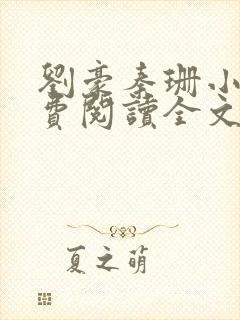 劉豪秦珊小
費閱讀全文
夏之萌